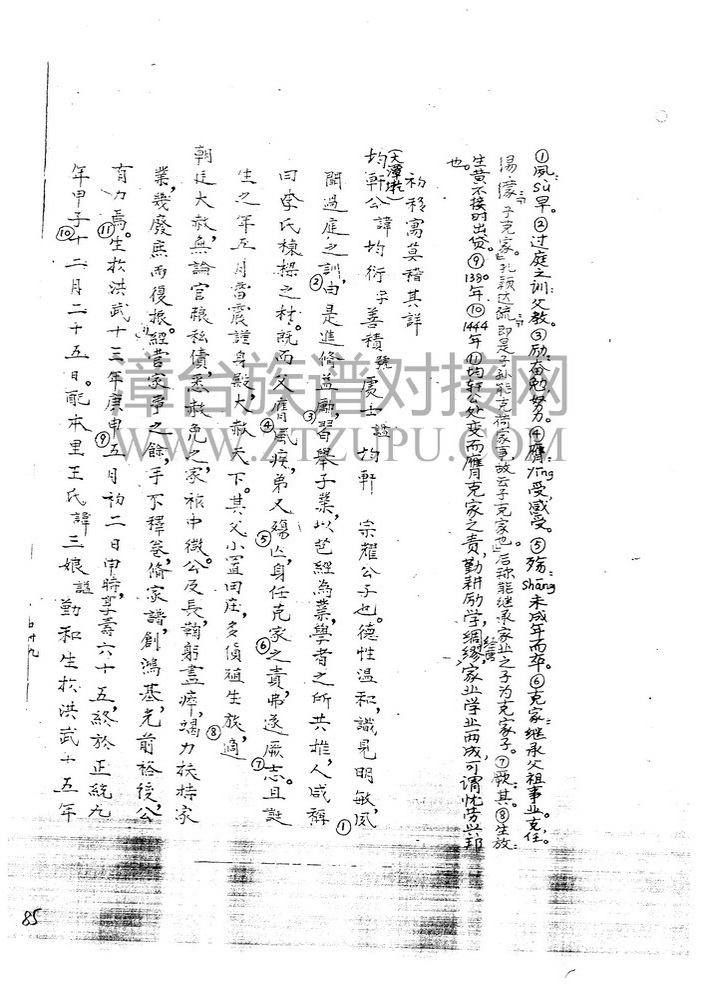 ①夙:sù早。②过庭之训:父教。③励:奋勉努力。④膺:yīng受,感受。⑤殇:shāng未成年而卒。⑥克家:继承父祖事业。克,任。
汤·濛 子克家。孔颖达疏:即是子孙能克荷家事,故云子克家也。后称能继承家业之子为克家子。⑦厥:其。⑧生放:
生黄不接时出贷。⑨1380年⑩1444年⑪均轩公处变而膺克家之责,勤耕励学,绸缪经营家业学业两成,可谓忧劳兴邦
也。
初移寓莫稽其詳
(大潭乾)
均軒公諱均衍字善積號處士謚均軒 宗耀公子也。德性温和,識見明敏,夙①
聞過庭之訓②,由是進修益勵③,習舉子業,以芭經為業,學者之所共推,人咸稱
曰李氏棟樑之材。既而父膺④風疾,弟又殤⑤亡,身任克家⑥之責,弗遂厥⑦志。且誕
生之年五月雷震謹身殿,大赦天下。其父小置田庄,多債殖生放⑧,適
朝廷大赦,無論官賬私債,悉赦免之,家祚中微。公及長,鞠躬盡瘁,竭力扶持家
業,幾廢庶而復振。經营家亨之餘,手不釋卷,脩家譜,創鴻基,光前裕後,公
有力焉⑪。生扵洪武十三年庚申⑨五月初二日申時,享壽六十五,終於正統九
年甲子⑩十二月二十五日。配本里王氏諱三娘謚 勤和生扵洪武十五年
章台族谱对接网
WWW.ZTZUPU.COM
85